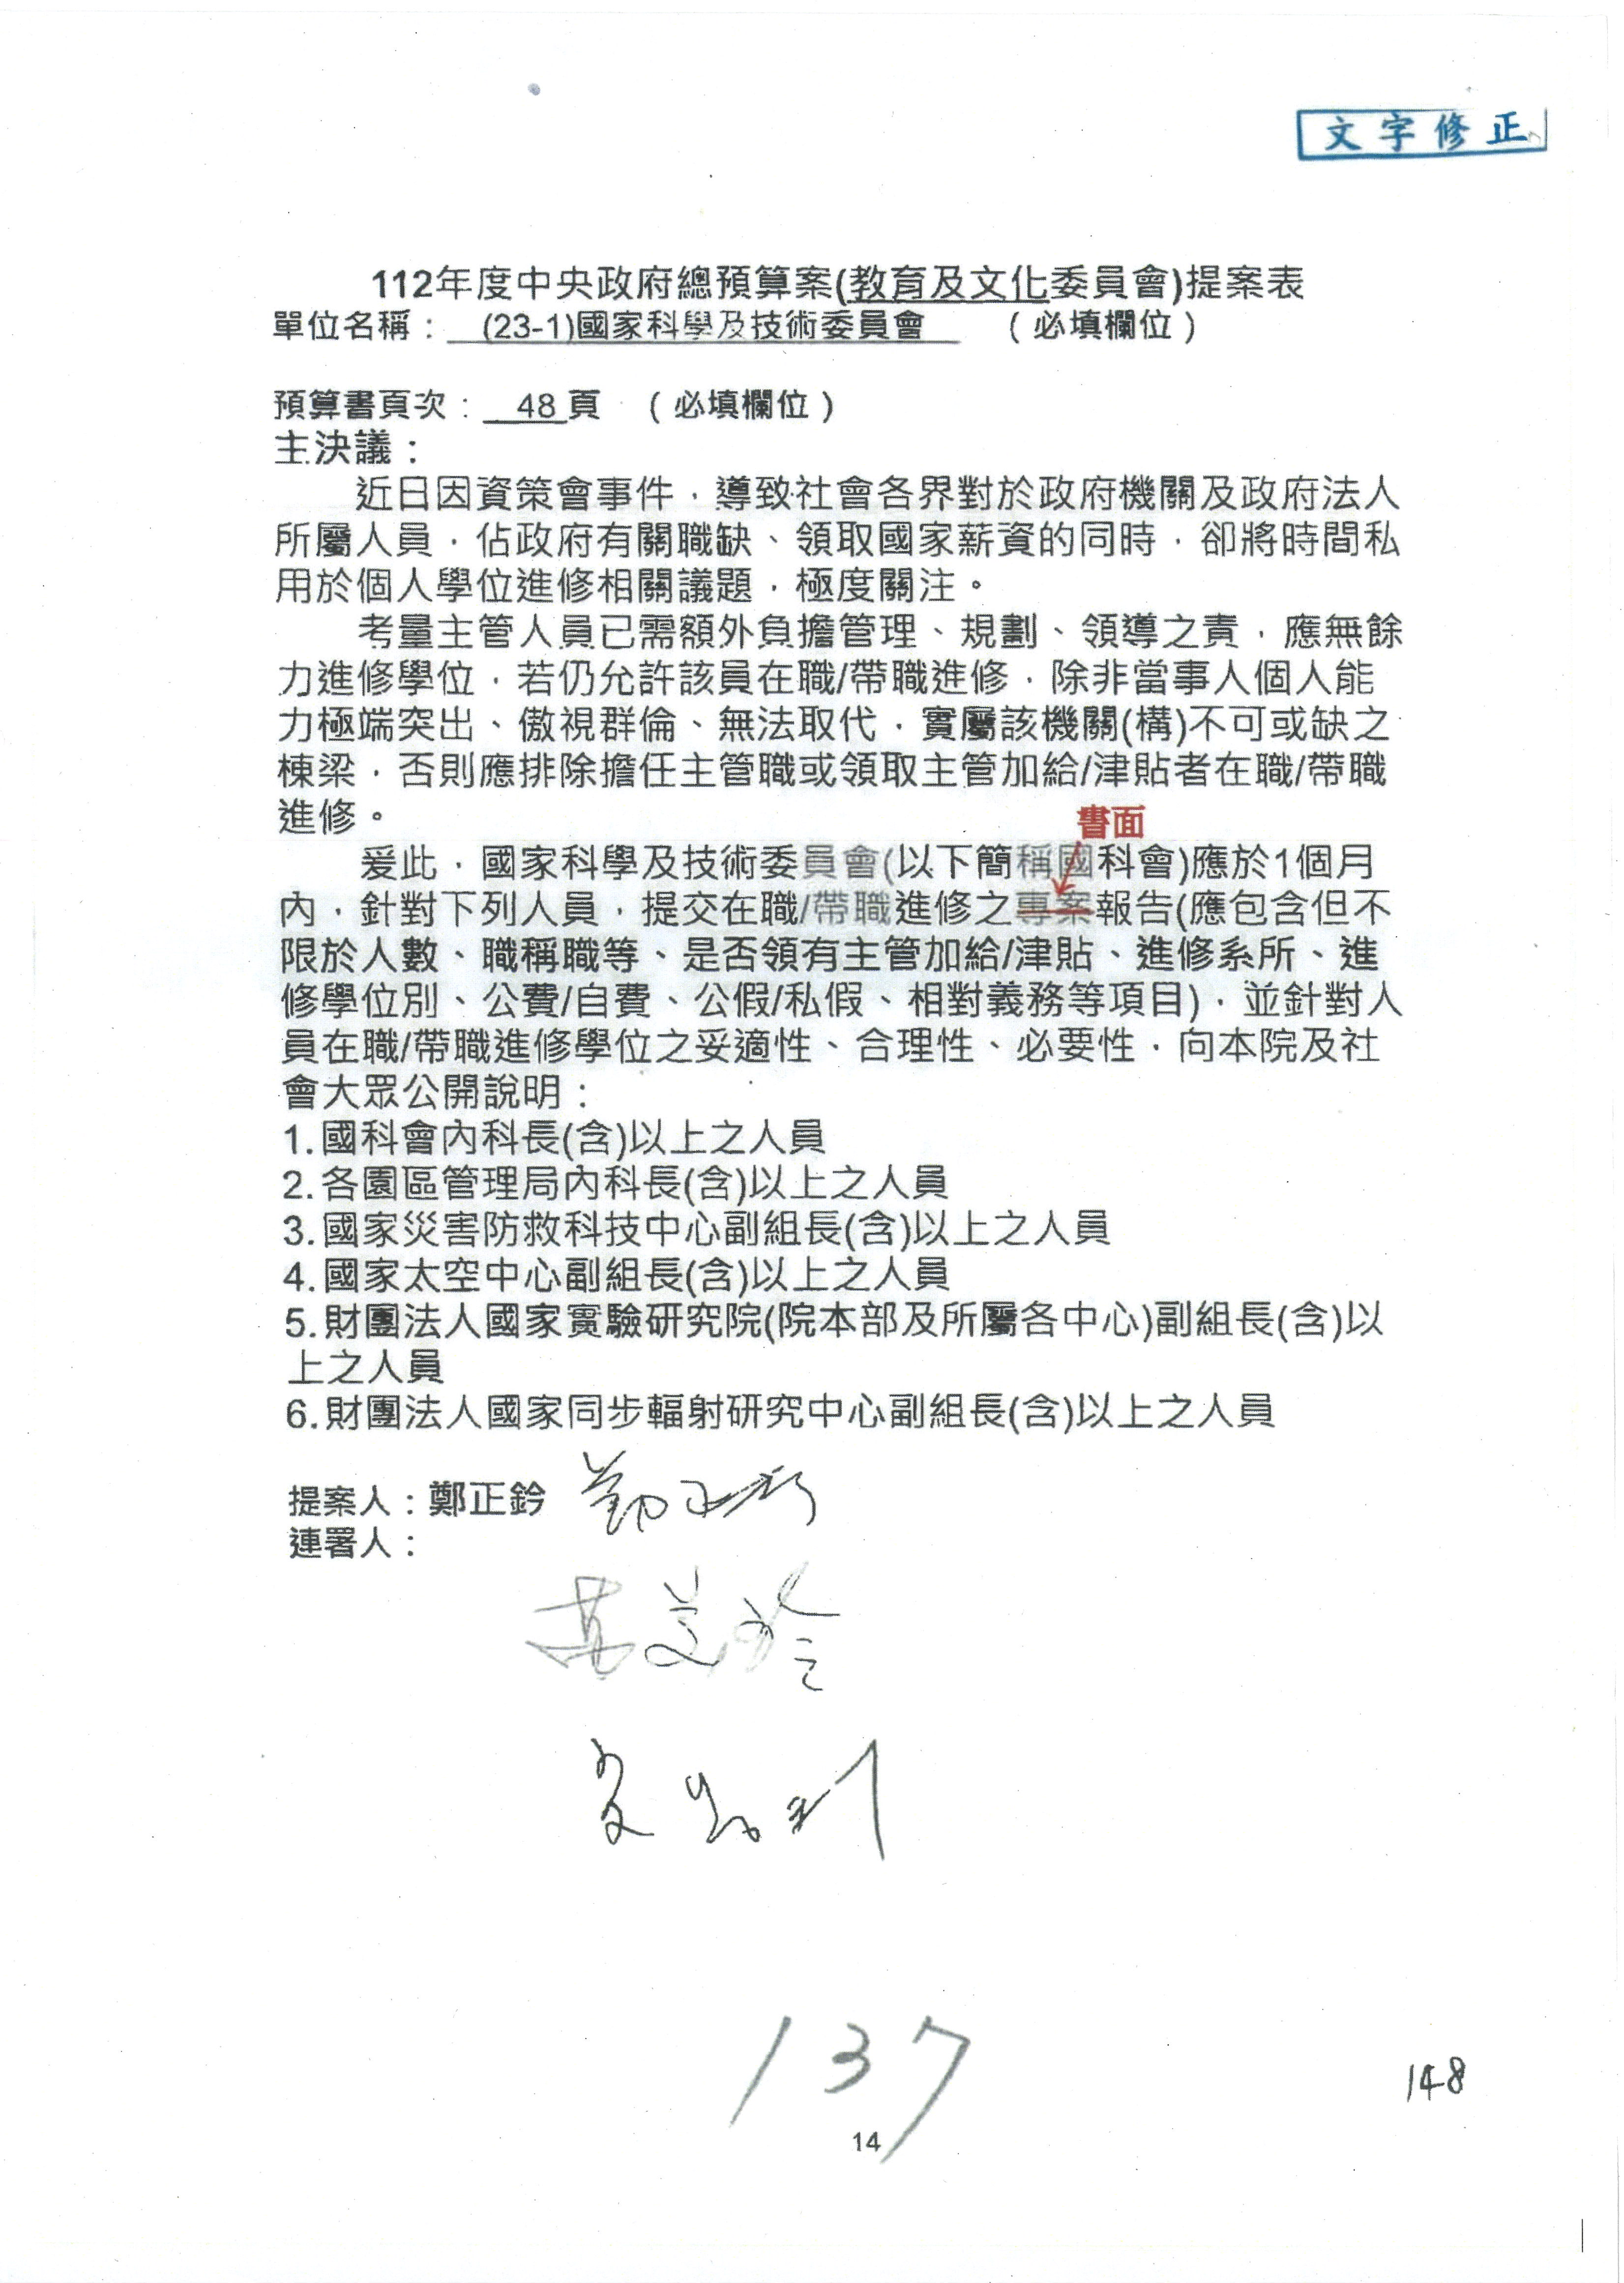 文字修正
112年度中央政府總預算案(教育及文化委員會)提案表
單位名稱：(23-1)國家科學及技術委員會 （必填欄位）
預算書頁次：48頁 （必填欄位）
主決議：
近日因資策會事件，導致社會各界對於政府機關及政府法人
所屬人員，佔政府有關職缺、領取國家薪資的同時，卻將時間私
用於個人學位進修相關議題，極度關注。
考量主管人員已需額外負擔管理、規劃、領導之責，應無餘
力進修學位，若仍允許該員在職/帶職進修，除非當事人個人能
力極端突出、傲視群倫、無法取代，實屬該機關(構)不可或缺之
棟梁，否則應排除擔任主管職或領取主管加給/津貼者在職/帶職
進修。
書面
爰此，國家科學及技術委員會(以下簡稱國科會)應於1個月
內，針對下列人員，提交在職/帶職進修之專案報告(應包含但不
限於人數、職稱職等、是否領有主管加給/津貼、進修系所、進
修學位別、公費/自費、公假/私假、相對義務等項目)，並針對人
員在職/帶職進修學位之妥適性、合理性、必要性，向本院及社
會大眾公開說明：
1.國科會內科長(含)以上之人員
2.各園區管理局內科長(含)以上之人員
3.國家災害防救科技中心副組長(含)以上之人員
4.國家太空中心副組長(含)以上之人員
5.財團法人國家實驗研究院(院本部及所屬各中心)副組長(含)以
上之人員
6.財團法人國家同步輻射研究中心副組長(含)以上之人員
提案人：鄭正鈐
連署人：
137
148
14